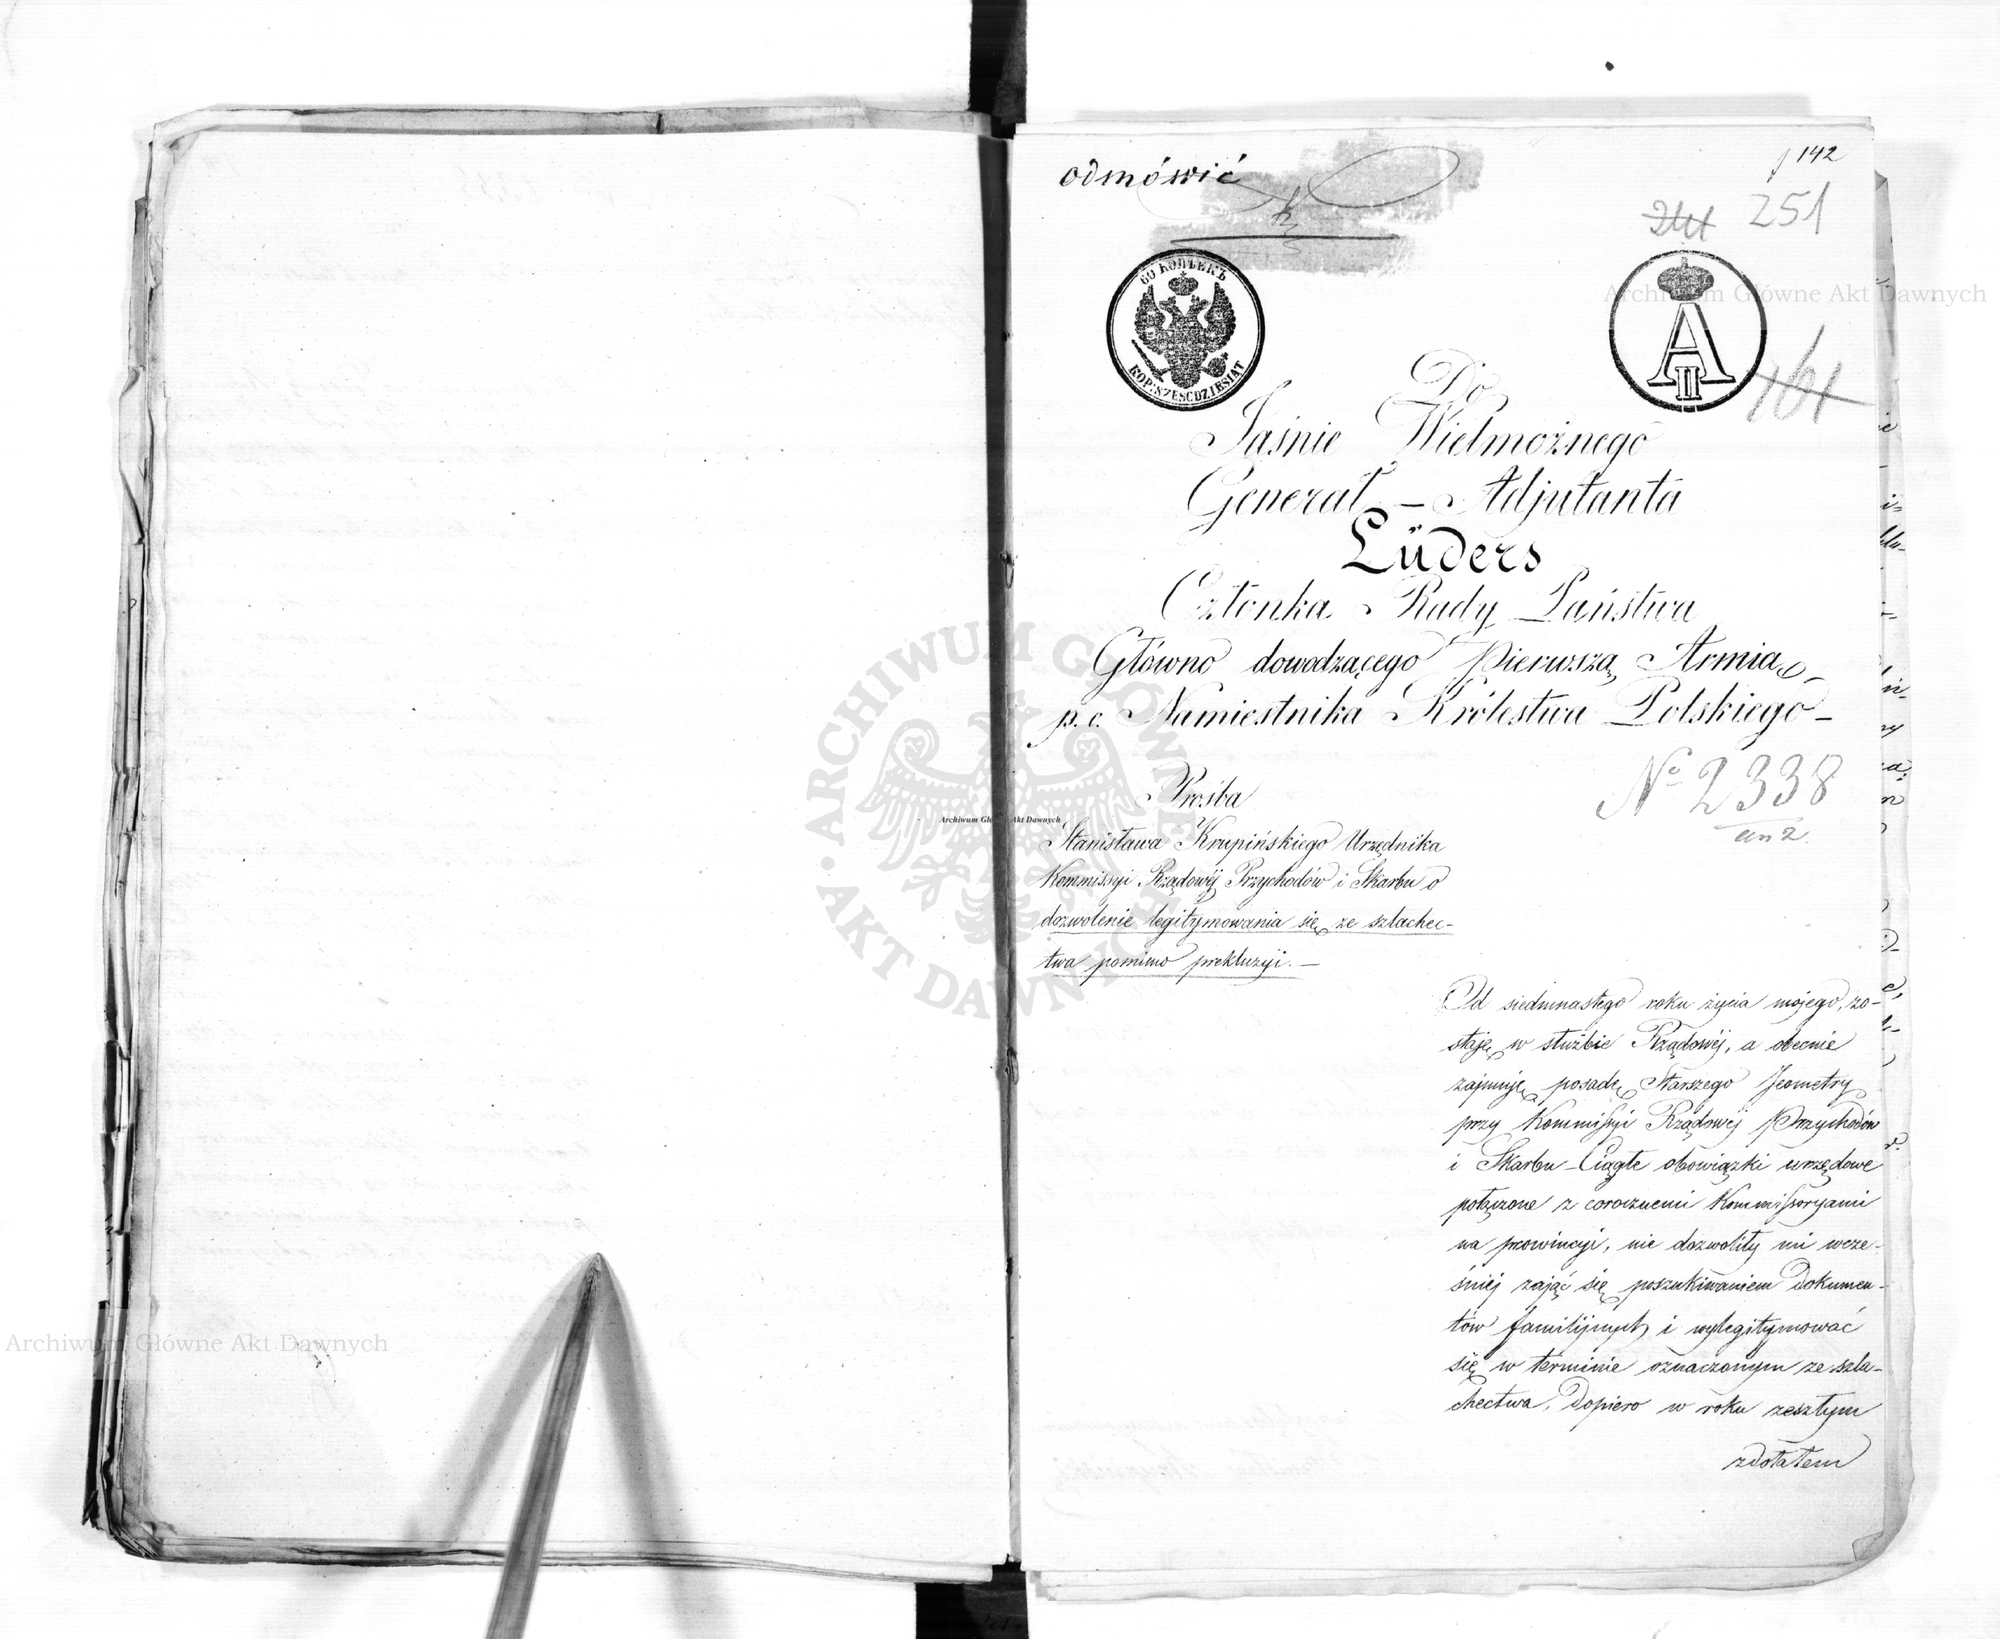 odmówić
142
251
241
60 КОПѢЕКЪ
KOP: SZEŚĆDZIESIĄT
A II
161
Do
Jaśnie Wielmożnego
Generał – Adjutanta
Lüders
Członka Rady Państwa
Główno dowodzącego Pierwszą Armią,
p. o. Namiestnika Królestwa Polskiego –
Nº 2338
an 2.
Prośba
Stanisława Krupińskiego Urzędnika
Kommissyi Rządowéj Przychodów i Skarbu o
dozwolenie legitymowania się ze szlachec-
twa pomimo prekluzyi. –
Od siedmnastego roku życia mojego, zo-
staję w służbie Rządowéj, a obecnie
zajmuję posadę Starszego Jeometry
przy Kommissyi Rządowéj Przychodów
i Skarbu – Ciągłe obowiązki urzędowe
połączone z corocznemi Kommissoryami
na prowincyi, nie dozwoliły mi wcze-
śniéj zająć się poszukiwaniem Dokumen-
tów familijnych i wylegitymować
się w terminie oznaczonym ze szla-
chectwa. Dopiero w roku zeszłym
zdołałem
Archiwum Główne Akt Dawnych
Archiwum Główne Akt Dawnych
Archiwum Główne Akt Dawnych
ARCHIWUM GŁÓWNE AKT DAWNYCH